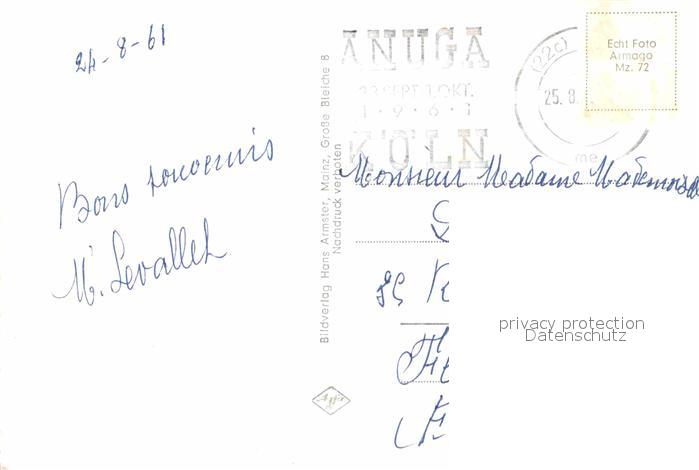 24-8-61
Bons souvenirs
M. Levallet
Bildverlag Hans Armster, Mainz, Große Bleiche 8
Nachdruck verboten
Agfa
ANUGA
23. SEPT. 1. OKT.
1·9·6·1
KÖLN
(22c)
25.8.
me
Echt Foto
Armago
Mz. 72
Monsieur Madame Mademoise
privacy protection
Datenschutz